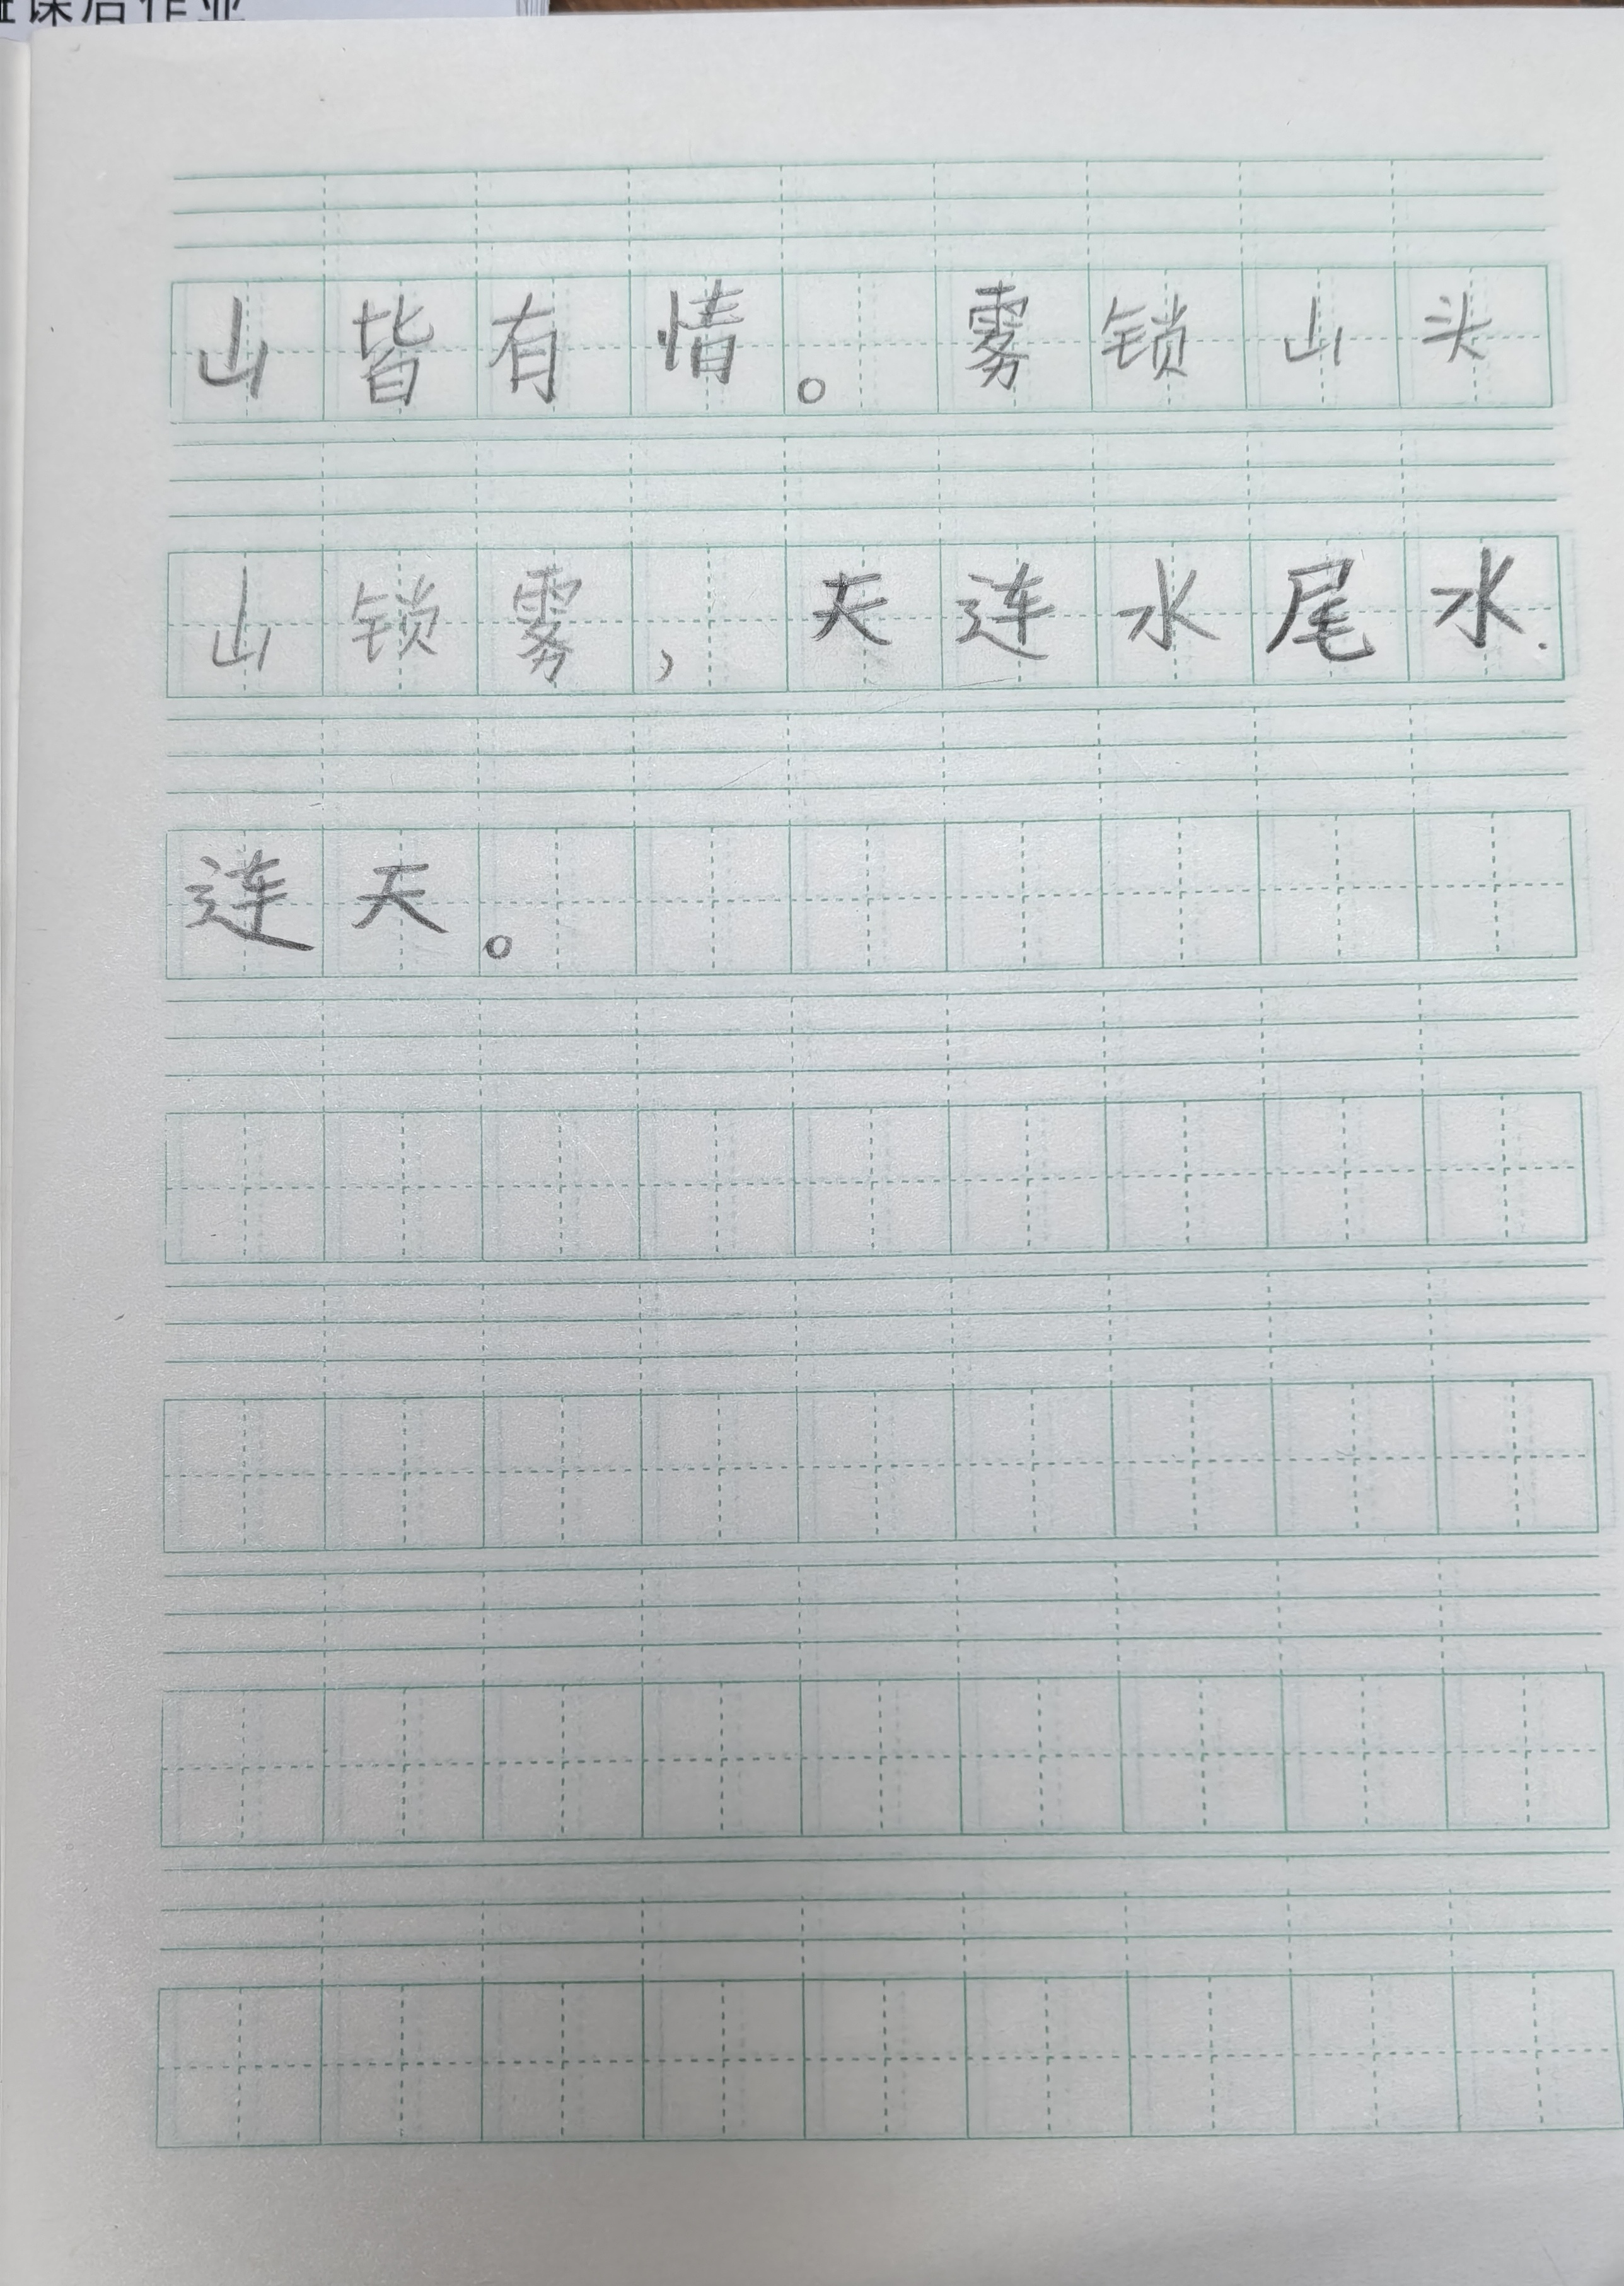 班课后作业
山皆有情。雾锁山头
山锁雾，天连水尾水
连天。